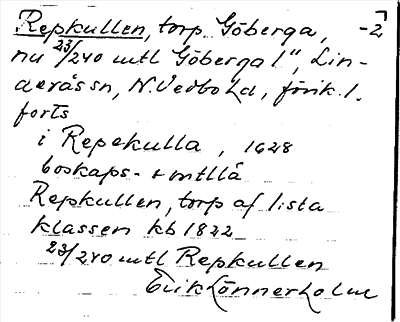 Repkullen, torp Göberga, -2
nu 23/240 mtl Göberga 1", Lin-
deråssn, N. Vedbo hd, förik. l.
forts
i Repekulla, 1628
boskaps- + mtllä
Repkullen, torp af lista
klassen kb 1822
23/240 mtl Repkullen
Erik Lönnerholm